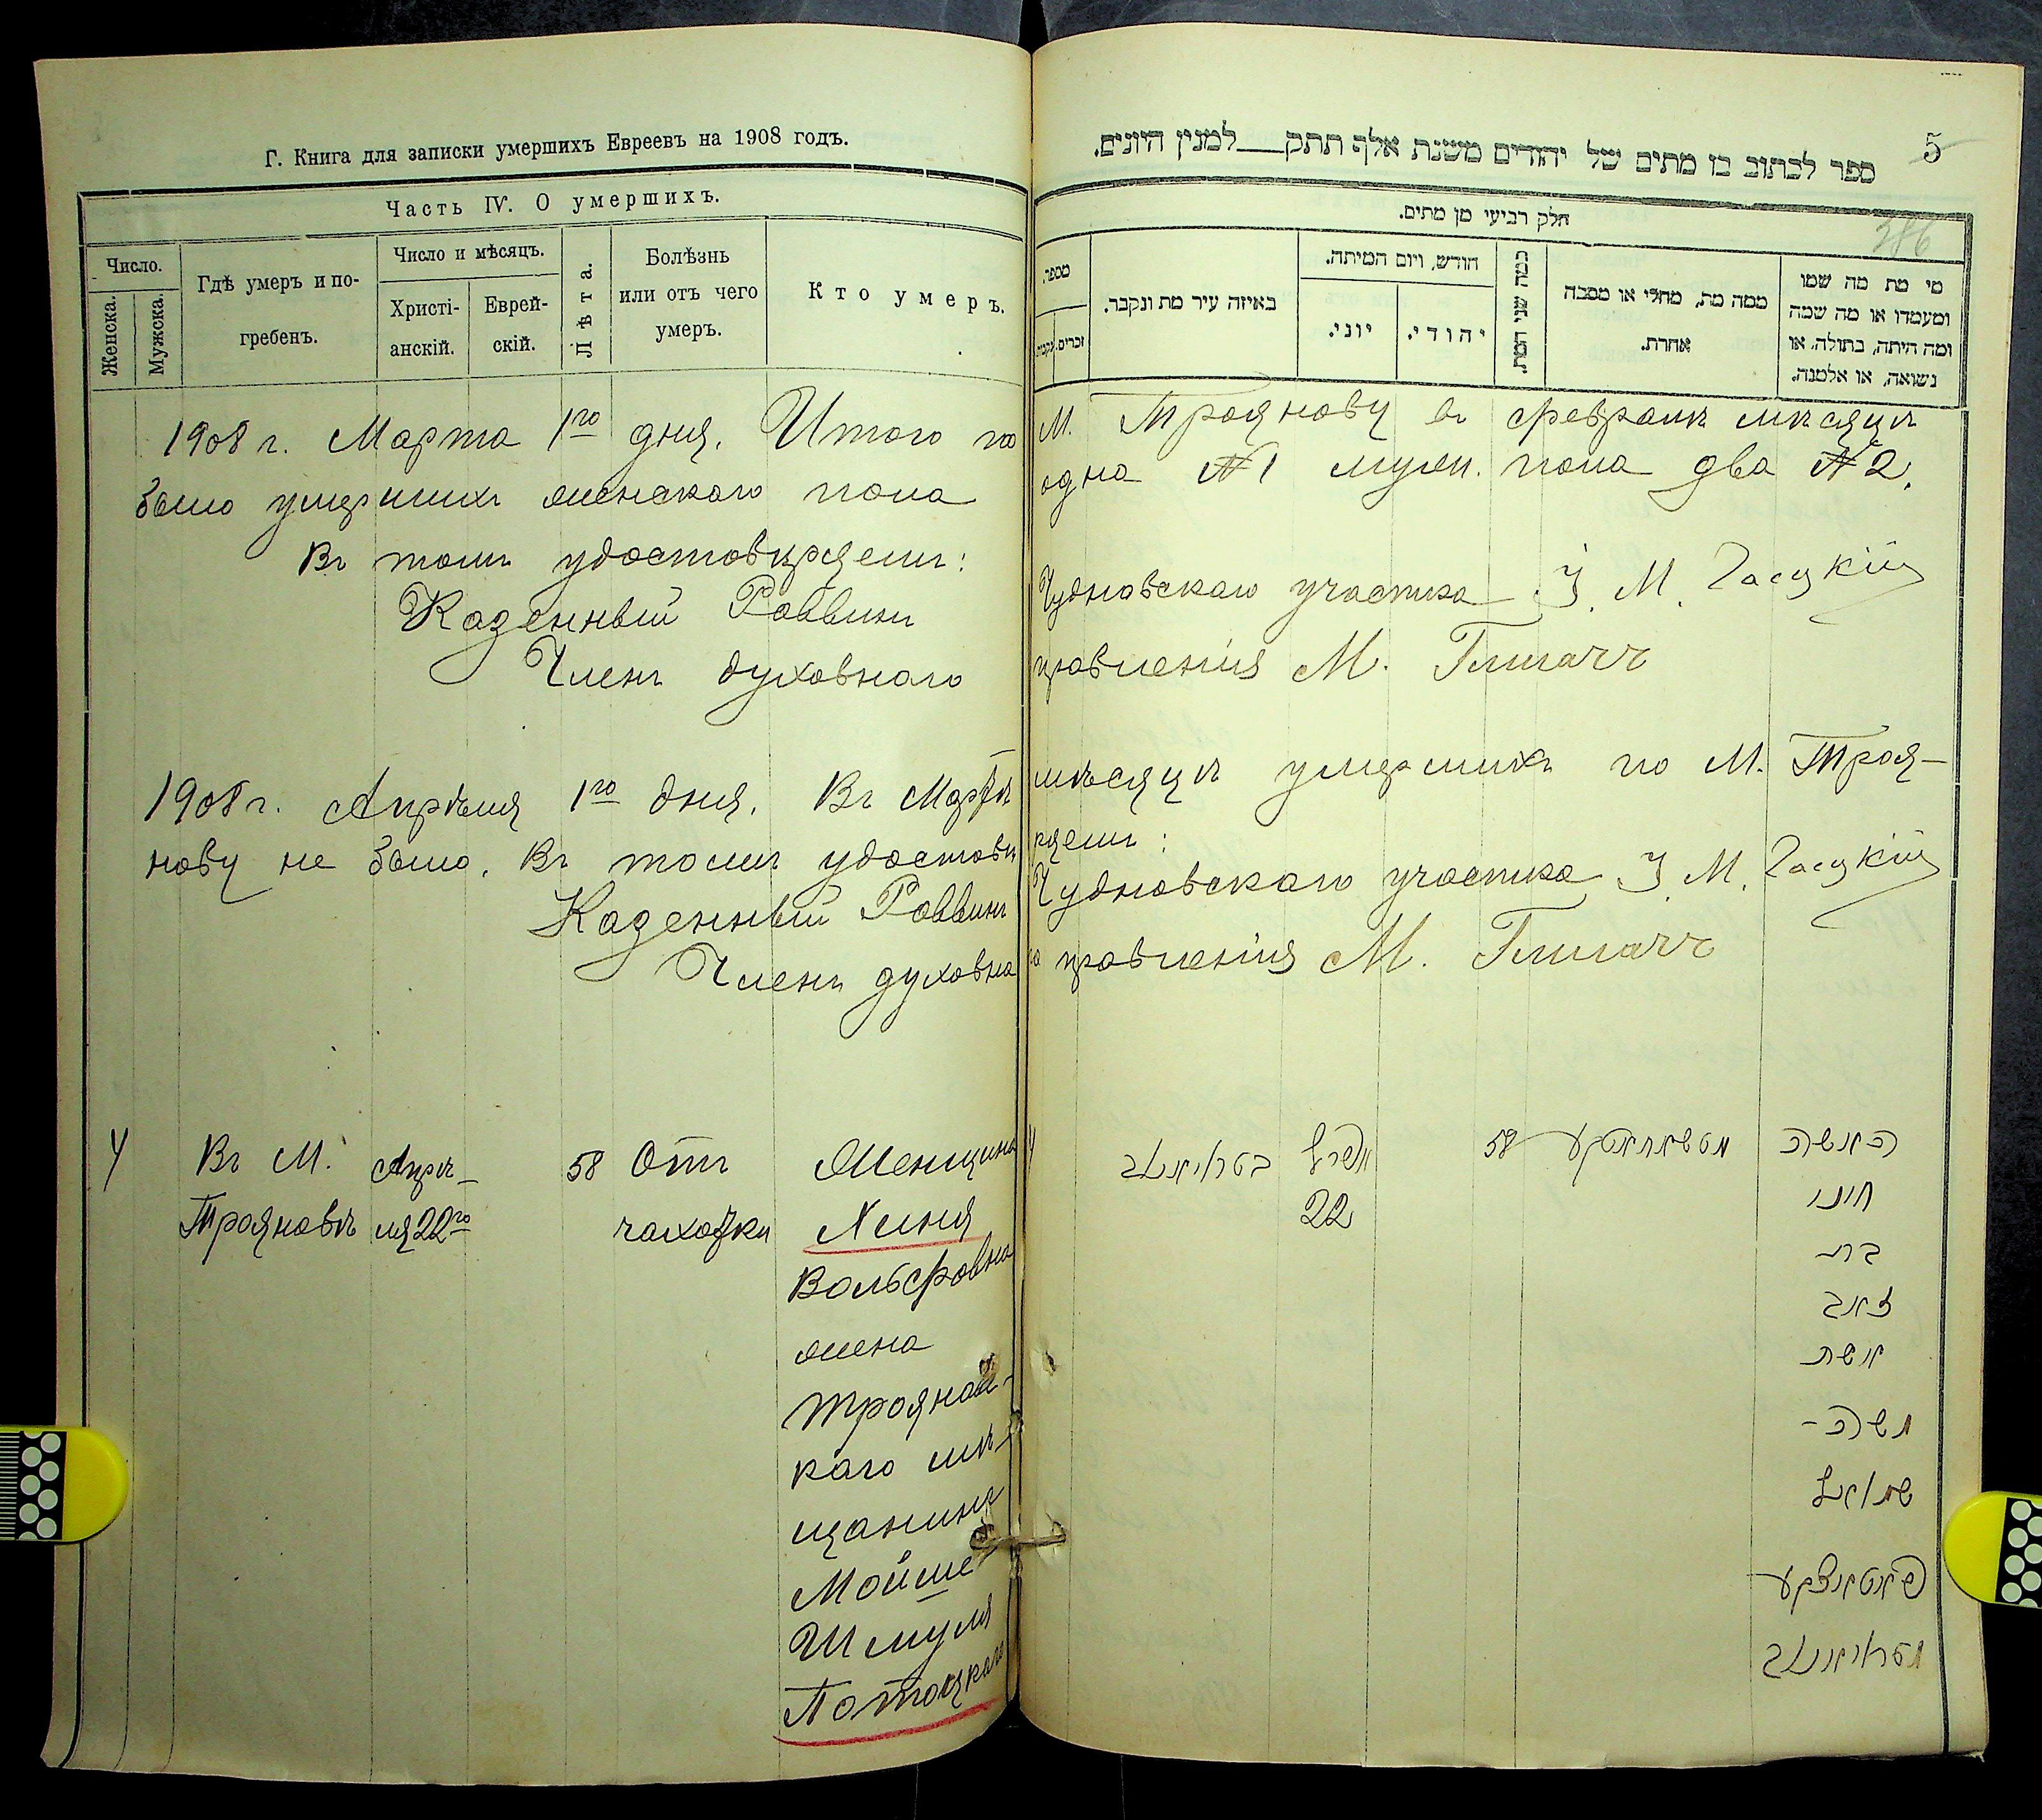 Г. Книга для записки умершихъ Евреевъ на 1908 годъ.
Часть IV. О умершихъ.
Число.
Женска.
Мужска.
Гдѣ умеръ и по-
гребенъ.
Число и мѣсяцъ.
Христі-
анскій.
Еврей-
скій.
Лѣта.
Болѣзнь
или отъ чего
умеръ.
Кто умеръ.
5
ספר לכתוב בו מתים של יהודים משנת אלף תתק למנין היונים.
386
חלק רביעי מן מתים.
מספר.
זכרים.
נקבות.
באיזה עיר מת ונקבר.
חודש, ויום המיתה.
יוני.
יהודי.
כמה שני המת.
ממה מת, מחלי או מסבה
אחרת.
מי מת מה שמו
ומעמדו או מה שמה
ומה היתה, בתולה, או
נשואה, או אלמנה.
1908 г. Марта 1го дня. Итого по М. Троянову въ февралѣ мѣсяцѣ
было умершихъ женскаго пола одна №1 мужск. пола два №2.
Въ томъ удостовѣряемъ:
Казенный Раввинъ Чудновскаго участка І. М. Гасцкій
Членъ духовнаго правленія М.
1908 г. Апрѣля 1го дня. Въ Мартѣ мѣсяцѣ умершихъ по М. Троя-
нову не было. Въ томъ удостовѣряемъ:
Казенный Раввинъ Чудновскаго участка І. М. Гасцкій
Членъ духовнаго правленія М.
4
Въ М.
Трояновѣ
Апрѣ-
ля 22го
58
Отъ
чахотки
Женщина
Хиня
Вольфовна
жена
Троянов-
скаго мѣ-
щанина
Мойше
Шмуля
Потоцкаго
4
בטראיאנאוו
אפריל
22
58
האשה
חינו
בת
זאב
אשת
משה-
שמואל
פאטאצקע
מטראיאנאוו